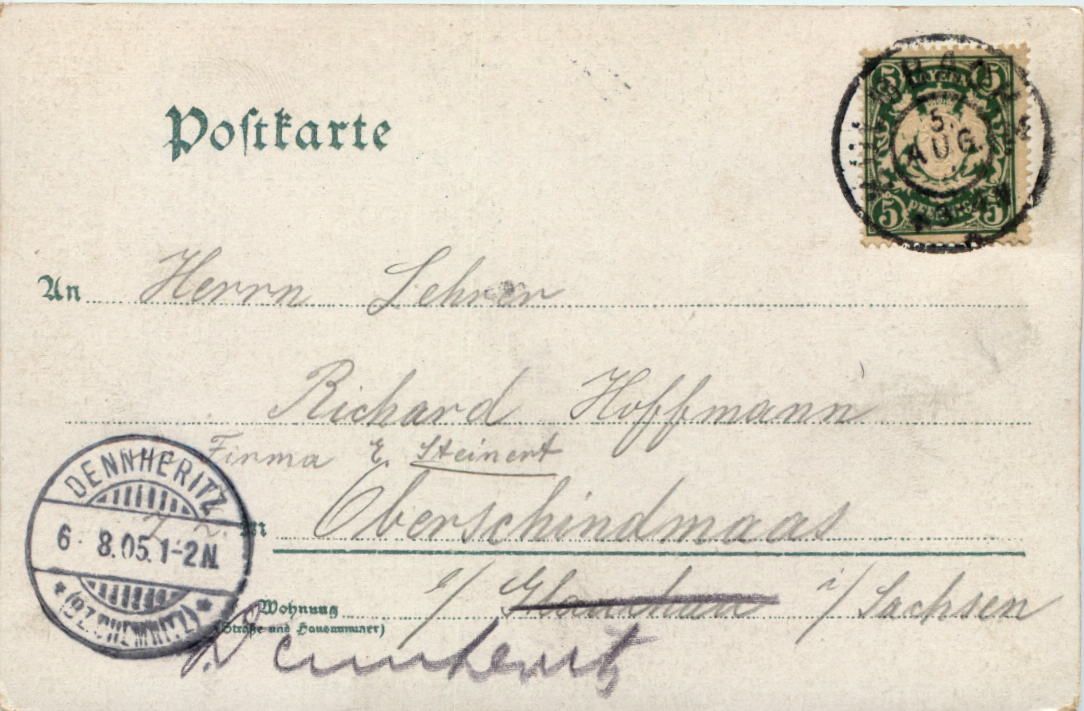 Postkarte
5 BAYERN 5
5.
AUG.
5 PFENNIG 5
An Herrn Lehrer
Richard Hoffmann
Firma E. Steinert
in Oberschindmaas
b/ Glauchau i/Sachsen
Wohnung
(Straße und Hausnummer)
Dennheritz
DENNHERITZ
6. 8.05. 1-2N.
* (BZ. CHEMNITZ) *